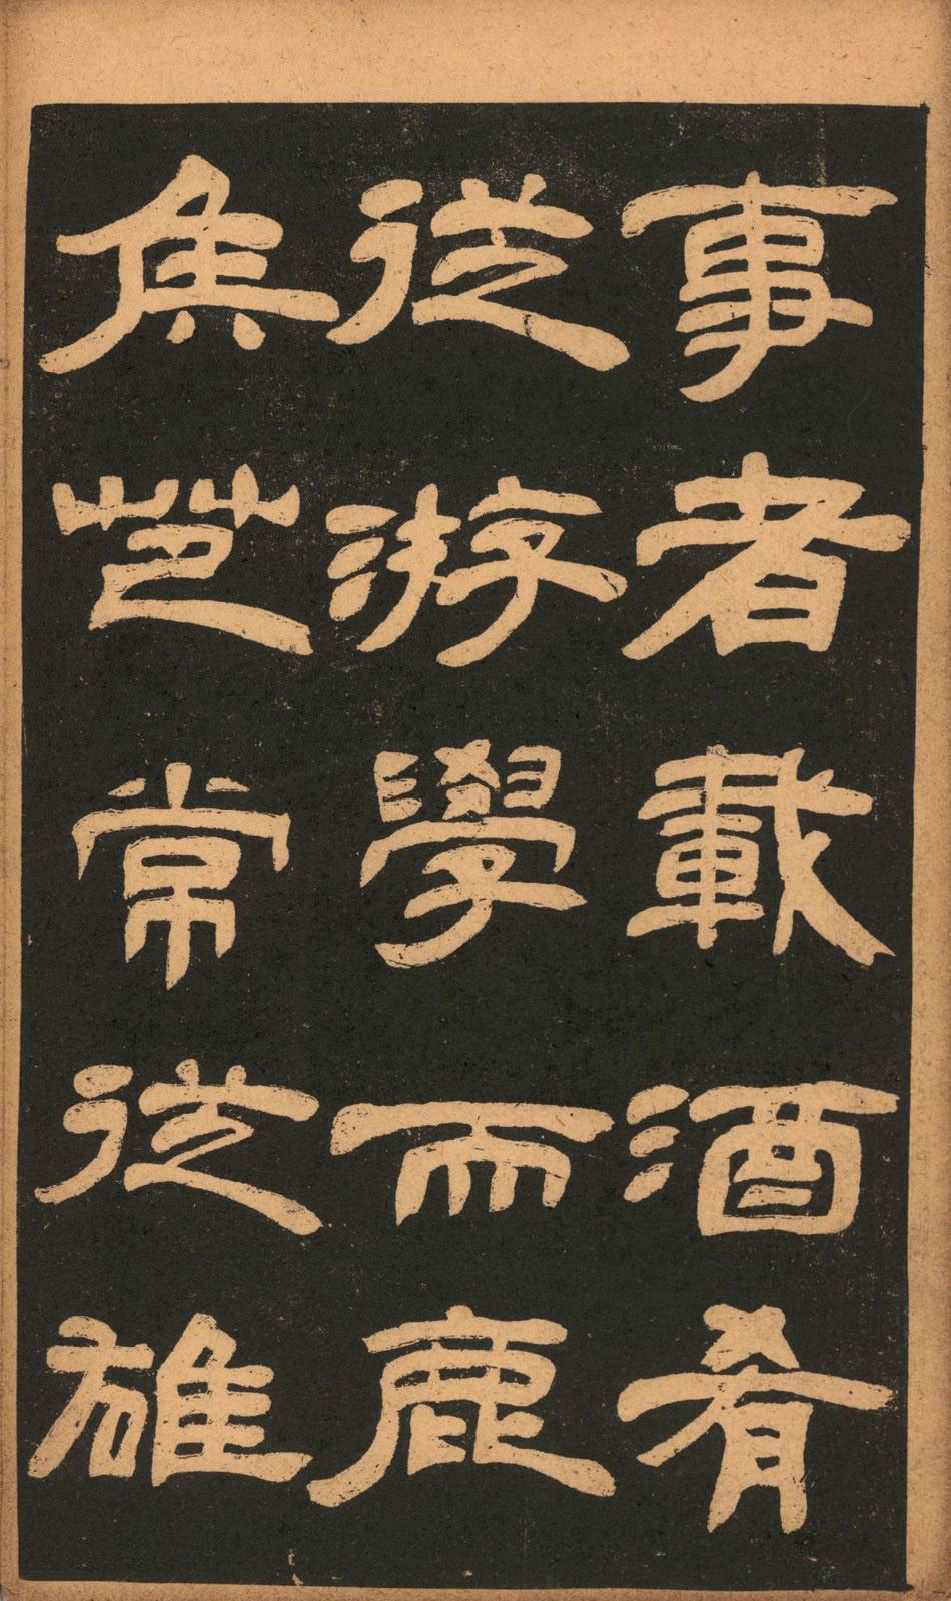 事者載酒肴
從游學而鹿
焦芭常從雄